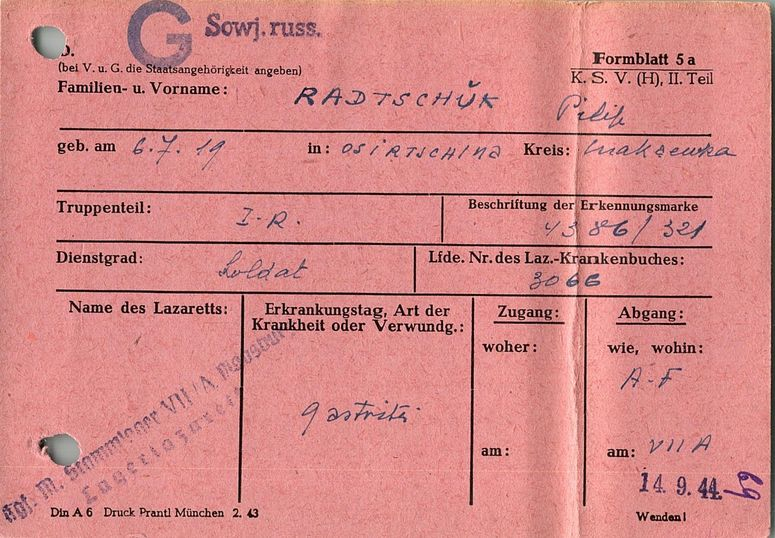 G Sowj. russ.
(bei V. u. G. die Staatsangehörigkeit angeben)
Formblatt 5 a
K. S. V. (H), II. Teil
Familien- u. Vorname: RADTSCHŬK Pilip
geb. am 6.7.19 in: OSIRTSCHINA Kreis:
Truppenteil: I-R.
Beschriftung der Erkennungsmarke
4386/321
Dienstgrad: Soldat
Lfde. Nr. des Laz.-Krankenbuches:
3066
Name des Lazaretts:
Erkrankungstag, Art der
Krankheit oder Verwundg.:
Zugang:
Abgang:
woher:
wie, wohin:
A-F
Stammlager VII/A
Gastritis
am:
am: VII A
14. 9. 44.
69
Din A 6 Druck Prantl München 2. 43
Wenden!